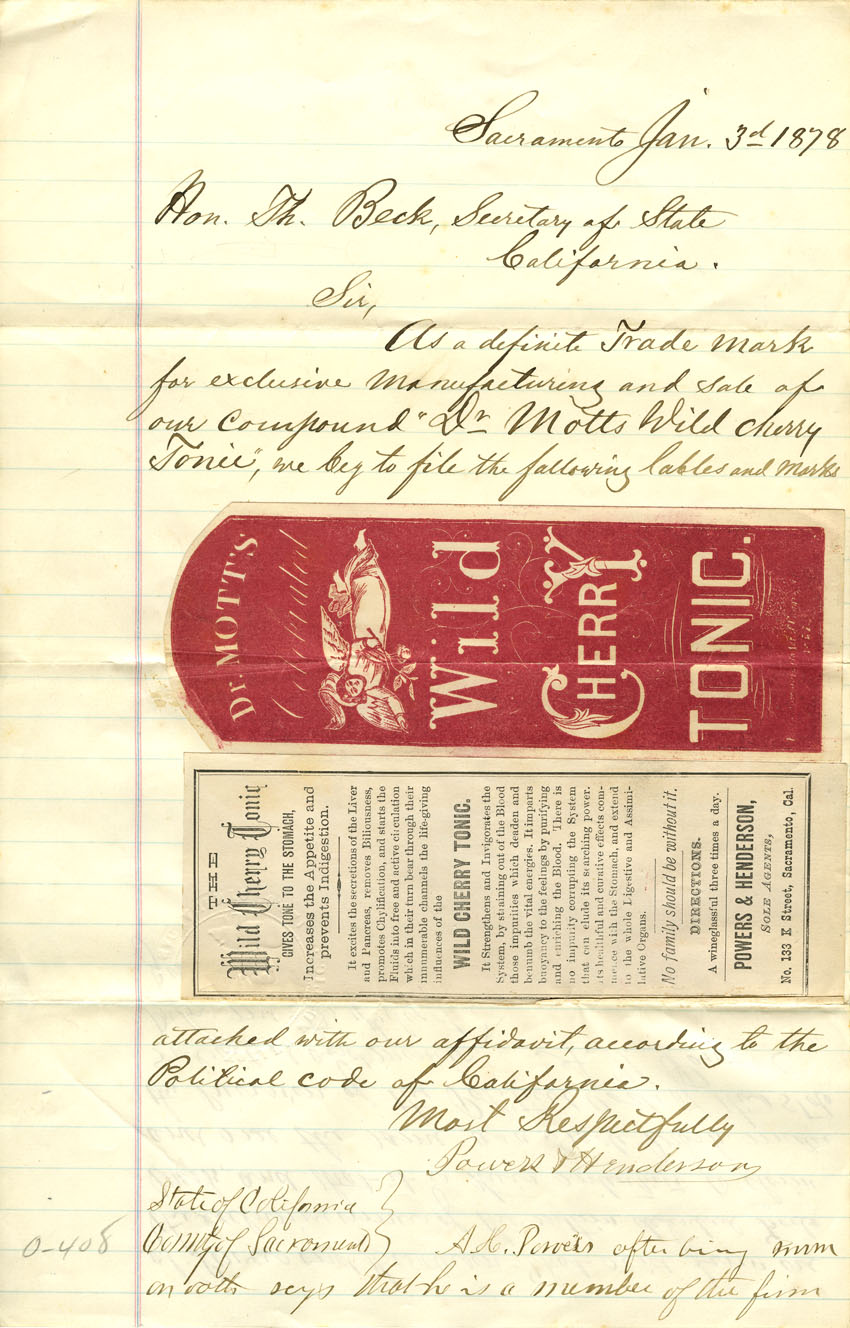 Sacramento Jan. 3d 1878
Hon. Th. Beck, Secretary of State
California.
Sir,
As a definite Trade Mark
for exclusive Manufacturing and sale of
our Compound "Dr Motts Wild Cherry
Tonic", we beg to file the following lables and Marks
Dr. MOTT'S
Celebrated
Wild
CHERRY
TONIC.
THE
Wild Cherry Tonic
GIVES TONE TO THE STOMACH,
Increases the Appetite and
prevents Indigestion.
It excites the secretions of the Liver
and Pancreas, removes Biliousness,
promotes Chylification, and starts the
Fluids into free and active circulation
which in their turn bear through their
innumerable channels the life-giving
influences of the
WILD CHERRY TONIC.
It Strengthens and Invigorates the
System, by straining out of the Blood
those impurities which deaden and
benumb the vital energies. It imparts
buoyancy to the feelings by purifying
and enriching the Blood. There is
no impurity corrupting the System
that can elude its searching power.
its healthful and curative effects com-
mence with the Stomach, and extend
to the whole Digestive and Assimi-
lative Organs.
No family should be without it.
DIRECTIONS.
A wineglassful three times a day.
POWERS & HENDERSON,
SOLE AGENTS,
No. 133 K Street, Sacramento, Cal.
attached with our affidavit, according to the
Political code of California.
Most Respectfully
Powers & Henderson
State of California
County of Sacramento
A.H. Powers after being sworn
on oath says that he is a member of the firm
0-408